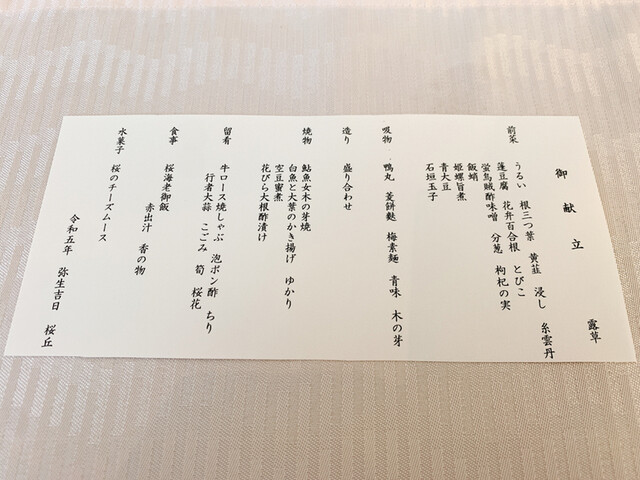 御献立
露草
前菜
うるい 根三つ葉 黄韮 浸し 糸雲丹
蓬豆腐 花弁百合根 とびこ
蛍烏賊酢味噌 分葱 枸杞の実
飯蛸
姫螺旨煮
青大豆
石垣玉子
吸物 鴨丸 菱餅麩 梅素麺 青味 木の芽
造り 盛り合わせ
焼物 鮎魚女木の芽焼
白魚と大葉のかき揚げ ゆかり
空豆蜜煮
花びら大根酢漬け
留肴 牛ロース焼しゃぶ 泡ポン酢 ちり
行者大蒜 こごみ 筍 桜花
食事 桜海老御飯
赤出汁 香の物
水菓子 桜のチーズムース
令和五年 弥生吉日 桜丘